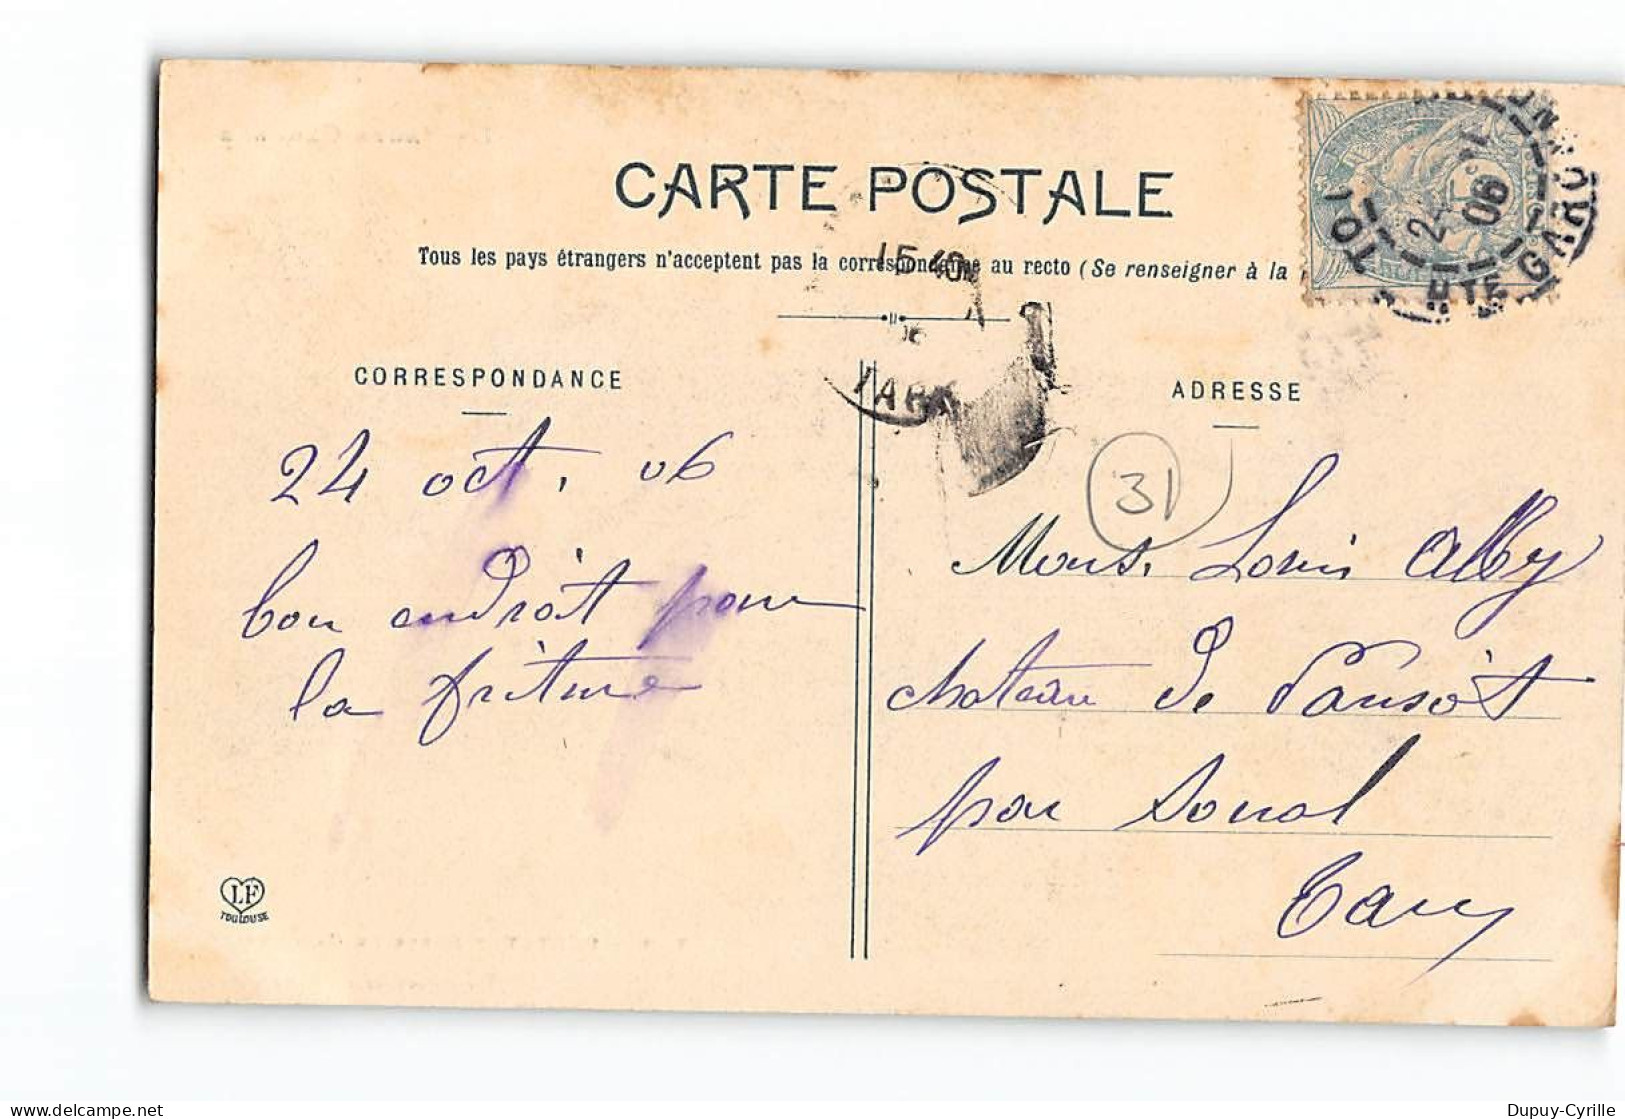 CARTE POSTALE
Tous les pays étrangers n'acceptent pas la correspondance au recto (Se renseigner à la
15 40
TARN
CORRESPONDANCE
ADRESSE
24 oct. 06
bon endroit pour
la friture
31
Mons. Louis Alby
chateau de
par Soual
Tarn
LF
TOULOUSE
06
HTE GARONNE
Dupuy-Cyrille